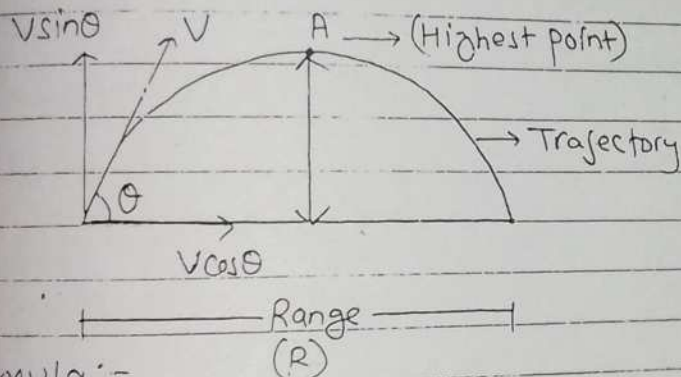 Vsinθ V A → (Highest point)
→ Trajectory
θ
Vcosθ
Range
(R)